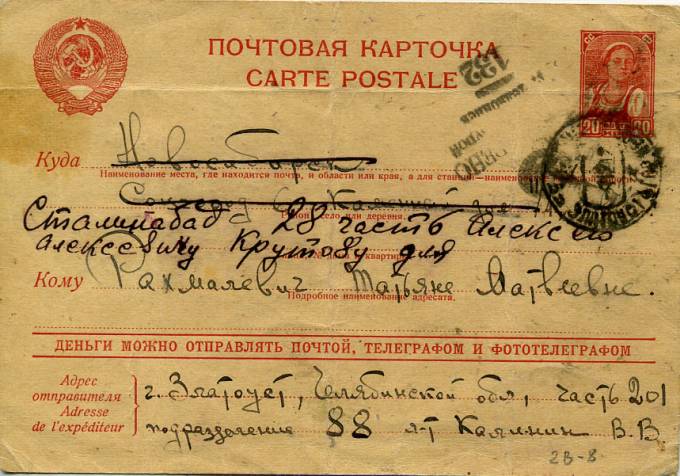 ПОЧТОВАЯ КАРТОЧКА
CARTE POSTALE
20 20
132
Куда Новосибирск
Наименование места, где находится почта, и области или края, а для станций—наименование
Соцгород 6
Район, село или деревня.
Сталинабад 28 часть Алексею
Алексеевичу Крутову для
Кому Рахмалевич Татьяне Матвеевне.
Подробное наименование адресата.
ДЕНЬГИ МОЖНО ОТПРАВЛЯТЬ ПОЧТОЙ, ТЕЛЕГРАФОМ И ФОТОТЕЛЕГРАФОМ
Адрес отправителя
Adresse de l'expéditeur
г. Златоуст, Челябинской обл, часть 201
подразделение 88 л-т Калинин В.В.
2В-8